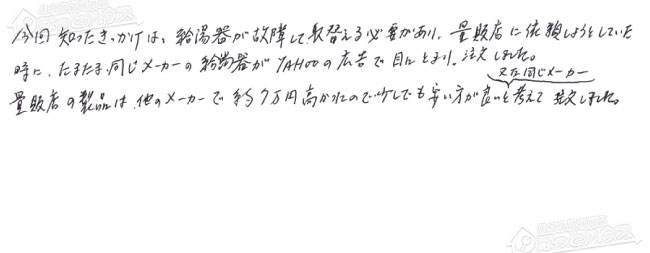 今回知ったきっかけは、給湯器が故障して取替える必要があり、量販店に依頼しようとしていた
時に、たまたま同じメーカーの給湯器がYAHOOの広告で目にとまり、注文しました。
又同じメーカー
量販店の製品は、他のメーカーで約7万円高かったので少しでも安い方が良いと考えて注文しました。